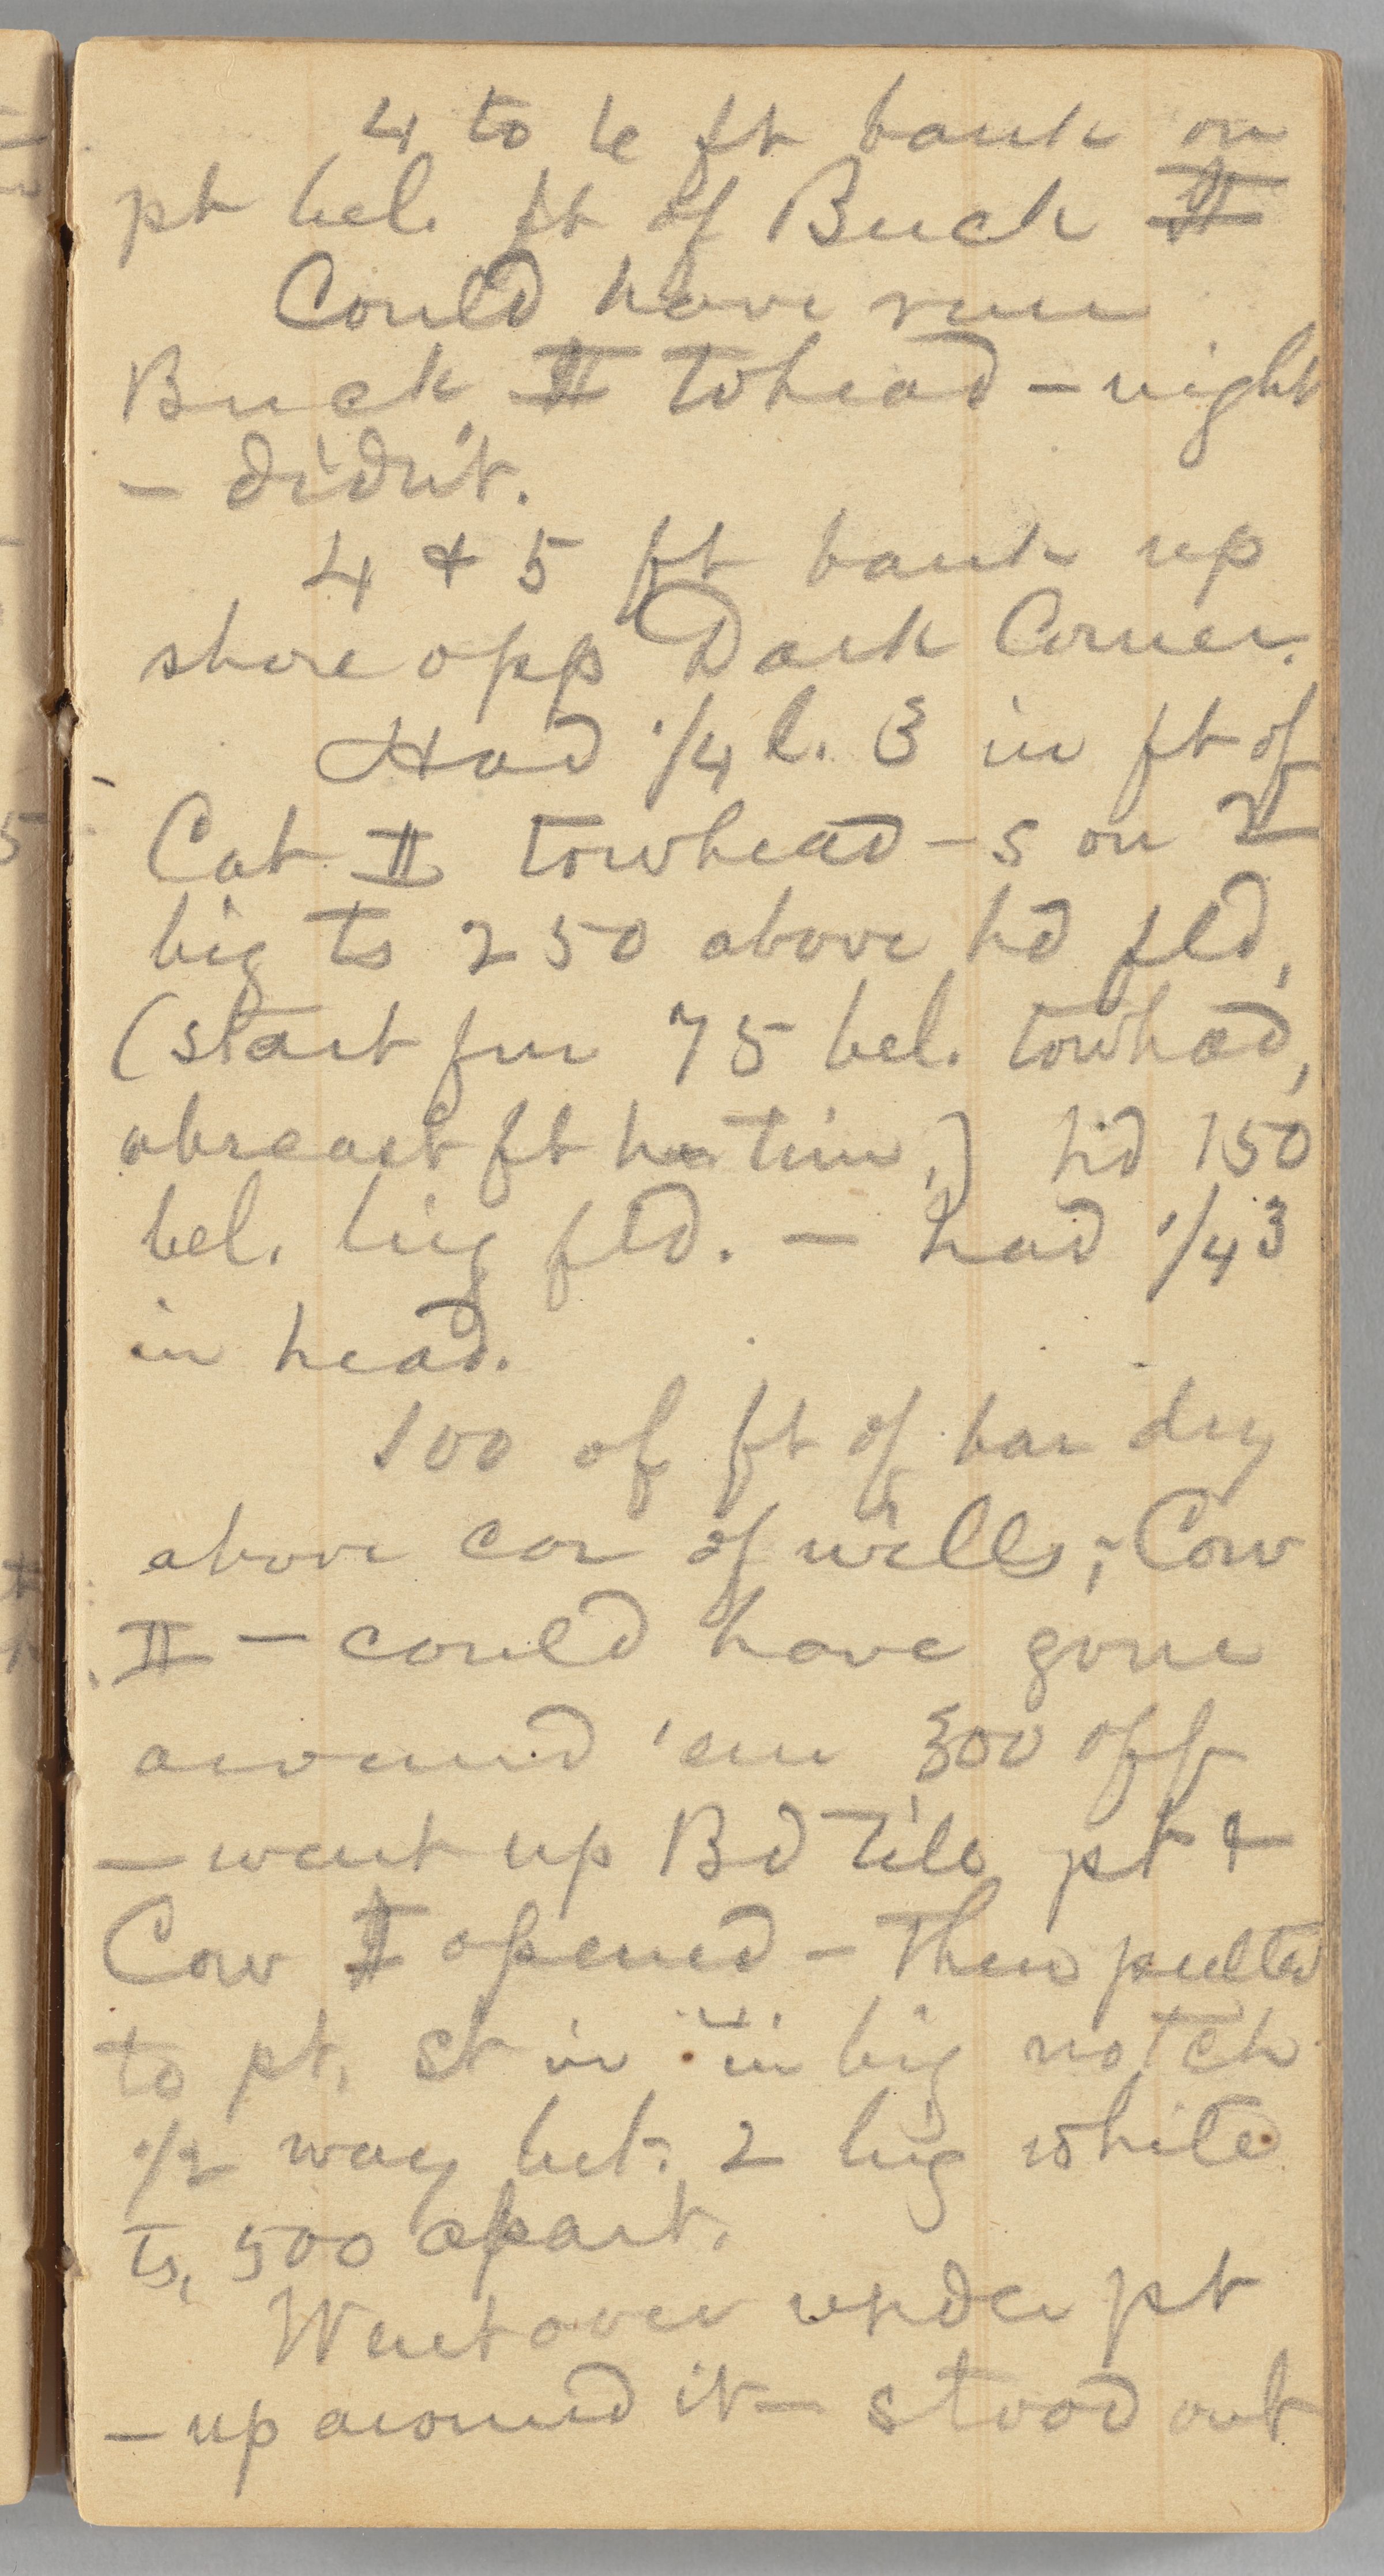 4 to 6 ft bank on
pt bel. ft of Buck II
Could have run
Buck II tohead – night
– didn't.
4 & 5 ft bank up
shore opp Dark Corner.
Had 1/4 l. 3 in ft of
Cat II towhead – s on 2
big ts 250 above hd fld,
(start fm 75 bel. towhad,
abreast ft tim,) hd 150
bel. big fld. – had 1/4 3
in head.
100 of ft of bar dry
above cor of wills; Cow
II – could have gone
around 'em 300 off
– went up Bd till pt &
Cow II opened – then pulled
to pt. St in in big notch
1/2 way bet. 2 big white
ts, 500 apart.
Went over under pt
– up around it – stood out